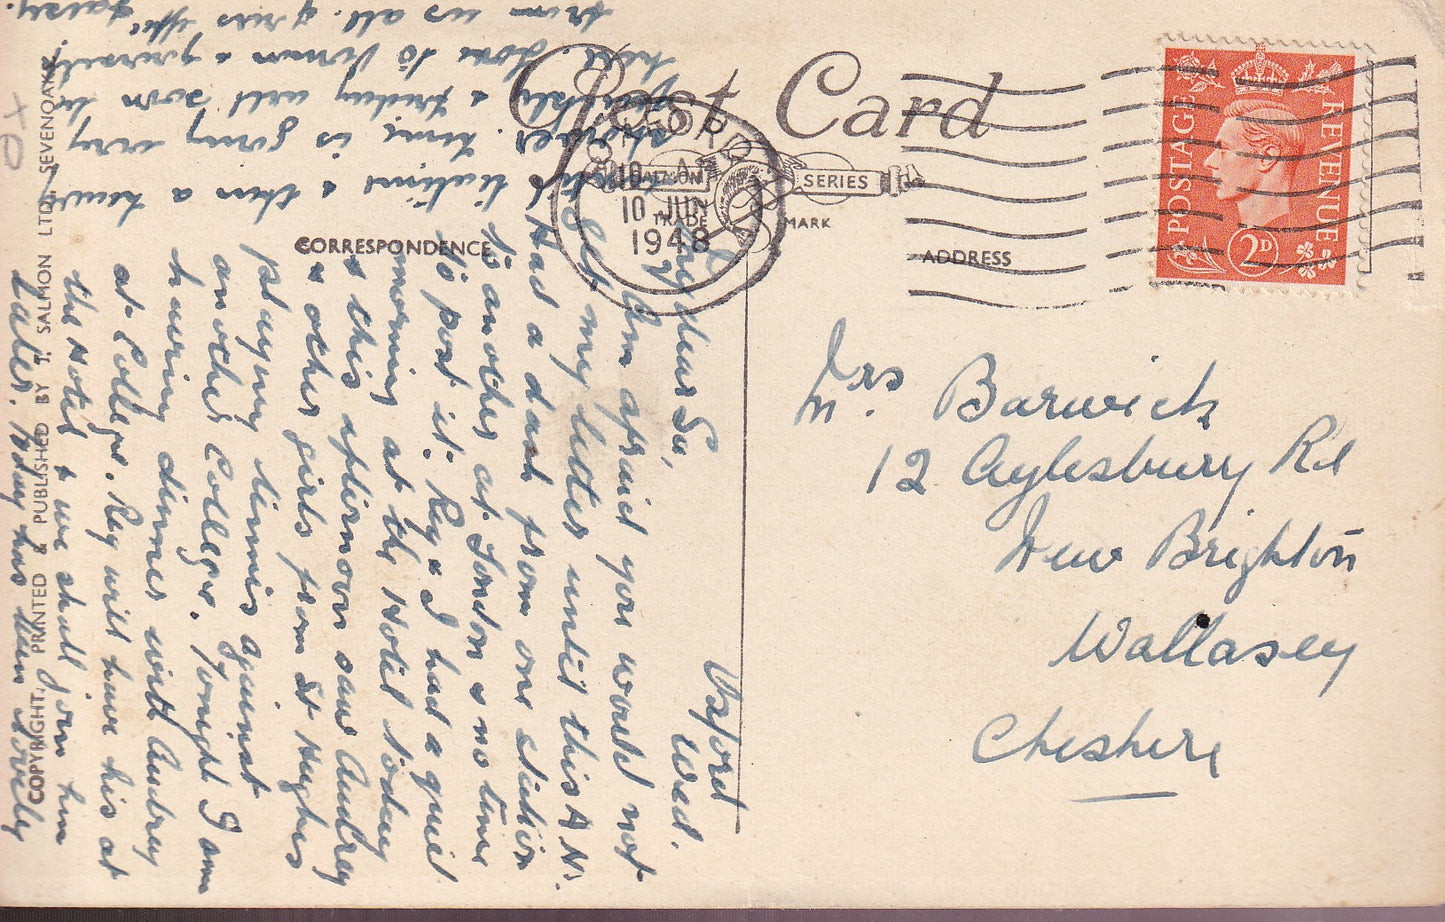 Post Card
SALMON SERIES
TRADE MARK
CORRESPONDENCE
ADDRESS
OXFORD
10 JUN
1948
POSTAGE
REVENUE
2D
COPYRIGHT. PRINTED & PUBLISHED BY J. SALMON LTD. SEVENOAKS.
Mrs. Barwick
12 Aylesbury Rd
New Brighton
Wallasey
Cheshire
Oxford
Wed.
My dear Su,
I am afraid you would not
get my letter until this A.N.
Had a dash from one station
to another at London & no time
to post it. Reg & I had a quiet
morning at the Hotel today
& this afternoon saw Audrey
& other girls from St Hughs
playing tennis against
another College. Tonight I am
having dinner with Audrey
at College. Reg will have his at
the Hotel & we shall join him
later. Today has been lovely
& then a heavy
time is going very
quickly & Friday will soon be
here. Love to & yourself
from us all.